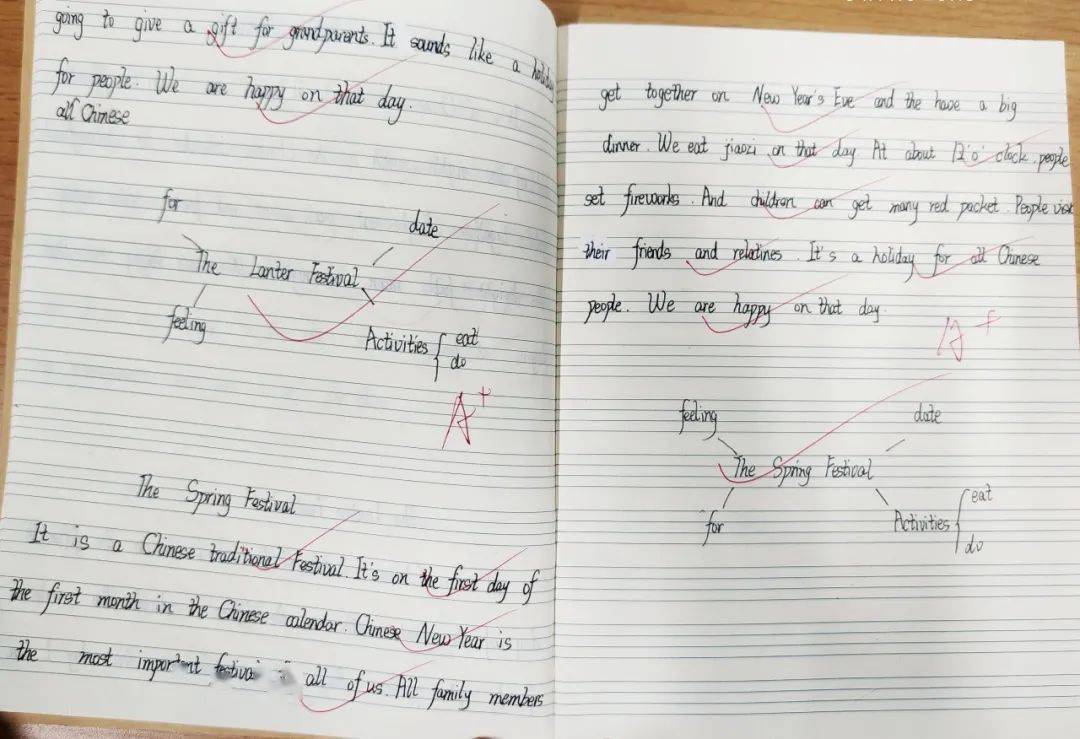 going to give a gift for grandparents. It sounds like a holiday
for people. We are happy on that day.
all Chinese
for
date
The Lanter Festival
feeling
Activities { eat
do
A+
The Spring Festival
It is a Chinese traditional Festival. It's on the first day of
the first month in the Chinese calendar. Chinese New Year is
the most important festival all of us. All family members
get together on New Year's Eve and the have a big
dinner. We eat jiaozi on that day At about 12 o'clock, people
set fireworks. And children can get many red packet. People visit
their friends and relatines. It's a holiday for all Chinese
people. We are happy on that day.
A+
feeling
date
The Spring Festival
for
Activities { eat
do